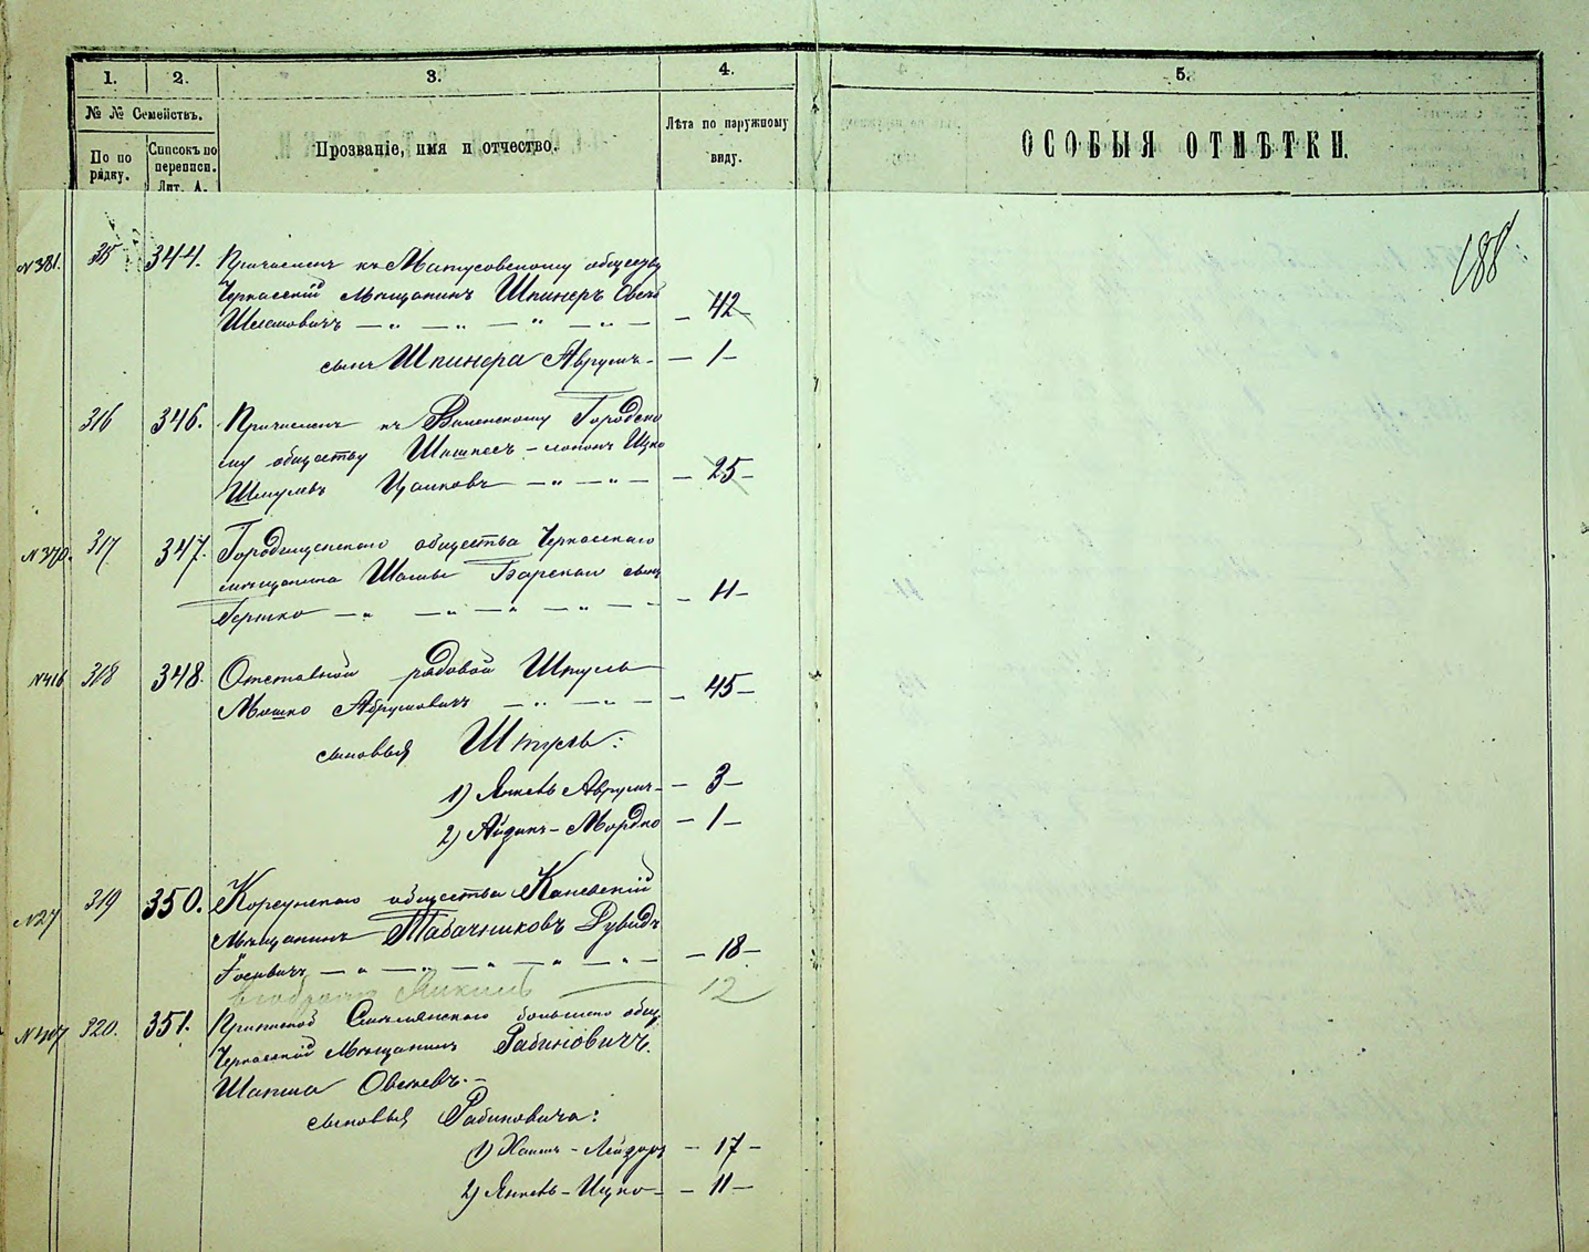 1. 2. 3. 4. 5.
№ № Семействъ.
По по рядку.
Списокъ по переписи. Лит. А.
Прозваніе, имя и отчество.
Лѣта по наружному виду.
ОСОБЫЯ ОТМѢТКИ.
188
№381. 315 344. Причисленъ къ Матусовскому обществу
Черкасскій Мѣщанинъ Шпинеръ Овсѣй
Шлемовичъ — „ — „ — „ — „ — — 42 —
сынъ Шпинера Аврумъ — — 1 —
316 346. Причисленъ къ Виленскому Городско
му обществу Ицко
Шмулевъ — „ — „ — — 25 —
№370. 317 347. Городищенскаго общества Черкасскаго
мѣщанина Барскаго сынъ
Гершко — „ — „ — „ — „ — „ — 11 —
№416 318 348. Отставной рядовой Штуль
Мошко Абрумовичъ — „ — „ — — 45 —
сыновья Штуль:
1) Янкель Аврумъ — — 3 —
2) Айзикъ - Мордко — 1 —
№27 319 350. Корсунскаго общества Каневскій
Мѣщанинъ Табачниковъ Дувидъ
Іосевичъ — „ — „ — „ — „ — „ — — 18 —
12
320. 351. Приписной Смѣлянскаго большаго общ.
Черкасскій Мѣщанинъ Рабиновичъ
Шапша Овсѣевъ. —
сыновья Рабиновича:
1) Хаимъ - Лейзоръ — 17 —
2) Янкель - Ицко — — 11 —